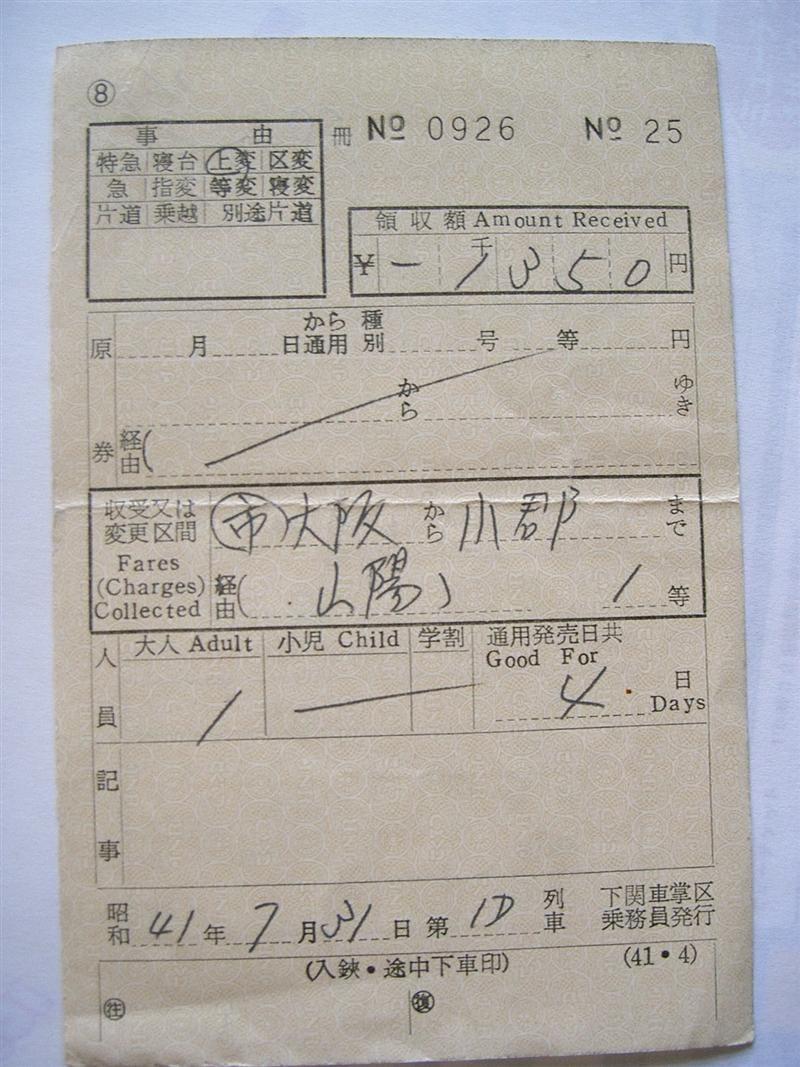 ⑧
冊 № 0926 № 25
事由
特急 寝台 上変 区変
急 指変 等変 寝変
片道 乗越 別途片道
領収額 Amount Received
¥ー1千350円
原券
月 日から通用 種別 号 等 円
から ゆき
経由(
収受又は変更区間
Fares
(Charges)
Collected
㊞大阪から小郡まで
経由(山陽) 1等
人員
大人 Adult 小児 Child 学割 通用発売日共
Good For
1 4日
Days
記事
昭和41年7月31日第1D列車 下関車掌区
乗務員発行
(入鋏・途中下車印) (41・4)
往 復